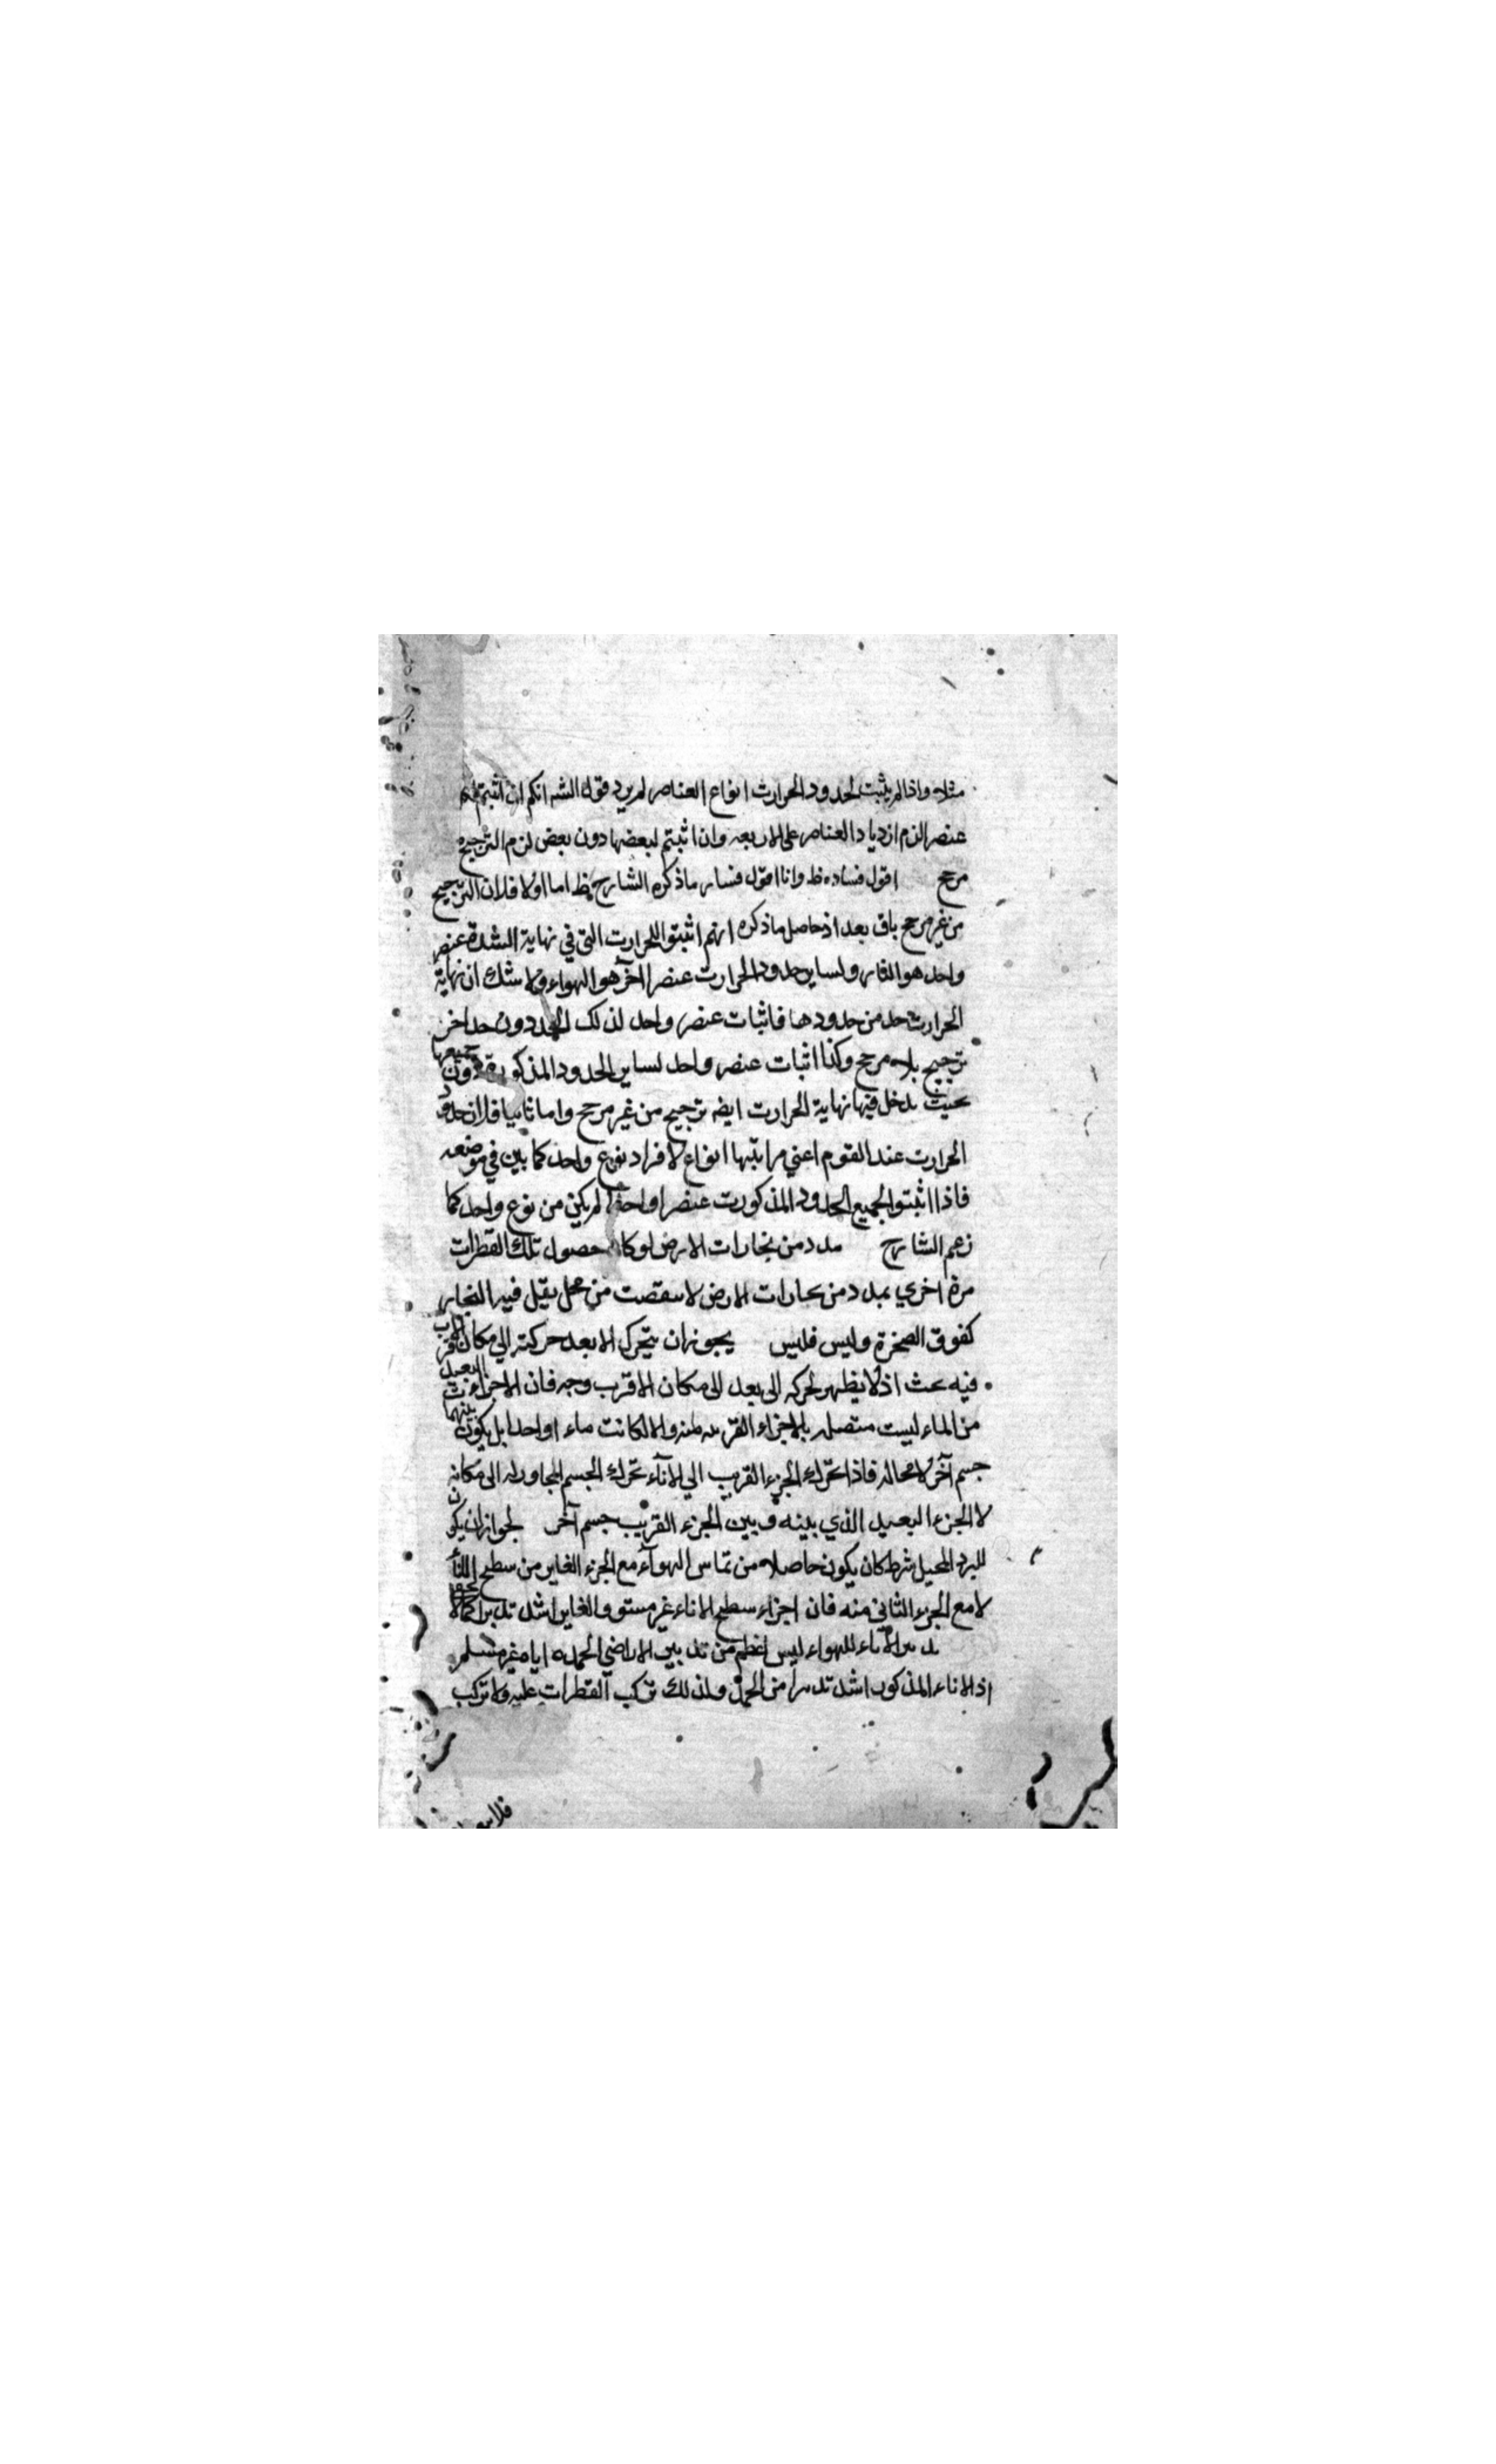 مثلا واذا لم يثبت لحدود الحرارت انواع العناصر لم يرد قول الشه انكم ان اثبتم لها
عنصر الزم ازدياد العناصر على الاربعه وان اثبتم لبعضها دون بعض لزم الترجيح
مرجح اقول فساده ظ وانا اقول فساد ما ذكره الشارح ظ اما اولا فلان الترجيح
من غير مرجح باق بعد اذ حاصل ما ذكره انهم اثبتوا للحرارت التي في نهاية الشدة عنصر
واحد هو النار ولساير حدود الحرارت عنصرا آخر هو الهواء ولا شك ان نهاية
الحرارت حد من حدودها فاثبات عنصر واحد لذلك الحد دون حد اخر
ترجيح بلا مرجح وكذا اثبات عنصر واحد لساير الحدود المذكورة دون جميعها
بحيث يدخل فيها نهاية الحرارت ايضه ترجيح من غير مرجح واما ثانيا فلان حدود
الحرارت عند القوم اعني مراتبها انواع لا افراد نوع واحد كما بين في موضعه
فاذا اثبتوا لجميع الحدود المذكورت عنصرا واحدا لم يكن من نوع واحد كما
زعم الشارح مدد من بخارات الارض لو كان حصول تلك القطرات
مرة اخري بمدد من بخارات الارض لا من محل يقل فيه البخار
كفوق الصخرة وليس فليس يجوز ان يتحرك الابعد حركته الي مكان الاقرب
فيه بحث اذ لا يظهر لحركه الى بعد الى مكان الاقرب وجه فان الاجزاء البعيدت
من الماء ليست متصله بالاجزاء القريبه منه والا لكانت ماء واحدا بل يكون بينهما
جسم آخر لا محاله فاذا تحرك الجزء القريب الي الانآء تحرك الجسم المجاور له الى مكانه
لا الجزء البعيد الذي بينه وبين الجزء القريب جسم آخر لجواز ان يكون
للبرد المحيل شرط كان يكون حاصلا من تماس الهوآء مع الجزء الغاير من سطح الانآ
لا مع الجزء الثاني منه فان اجزاء سطح الاناء غير مستو والغاير اشد تبريدا كما لا يخفى
تبريد الاناء للهواء ليس اعظم من تبريد الاراضي الجمده اياه غير مسلم
اذ الاناء المذكور اشد تبريدا من الجمد ولذلك تركب القطرات عليه ولا تركب